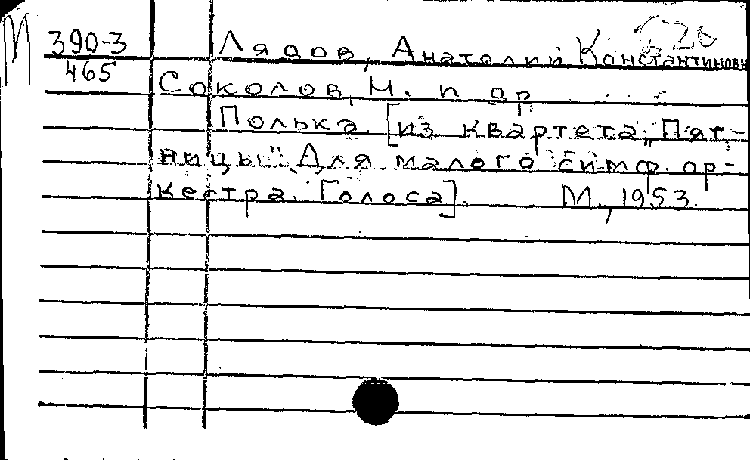 М 390-3 Лядов, Анатолий Константинович
465 Соколов, Н. и др
Полька. [из квартета „Пят-
ницы". Для малого симф. ор-
кестра. Голоса]. М., 1953.